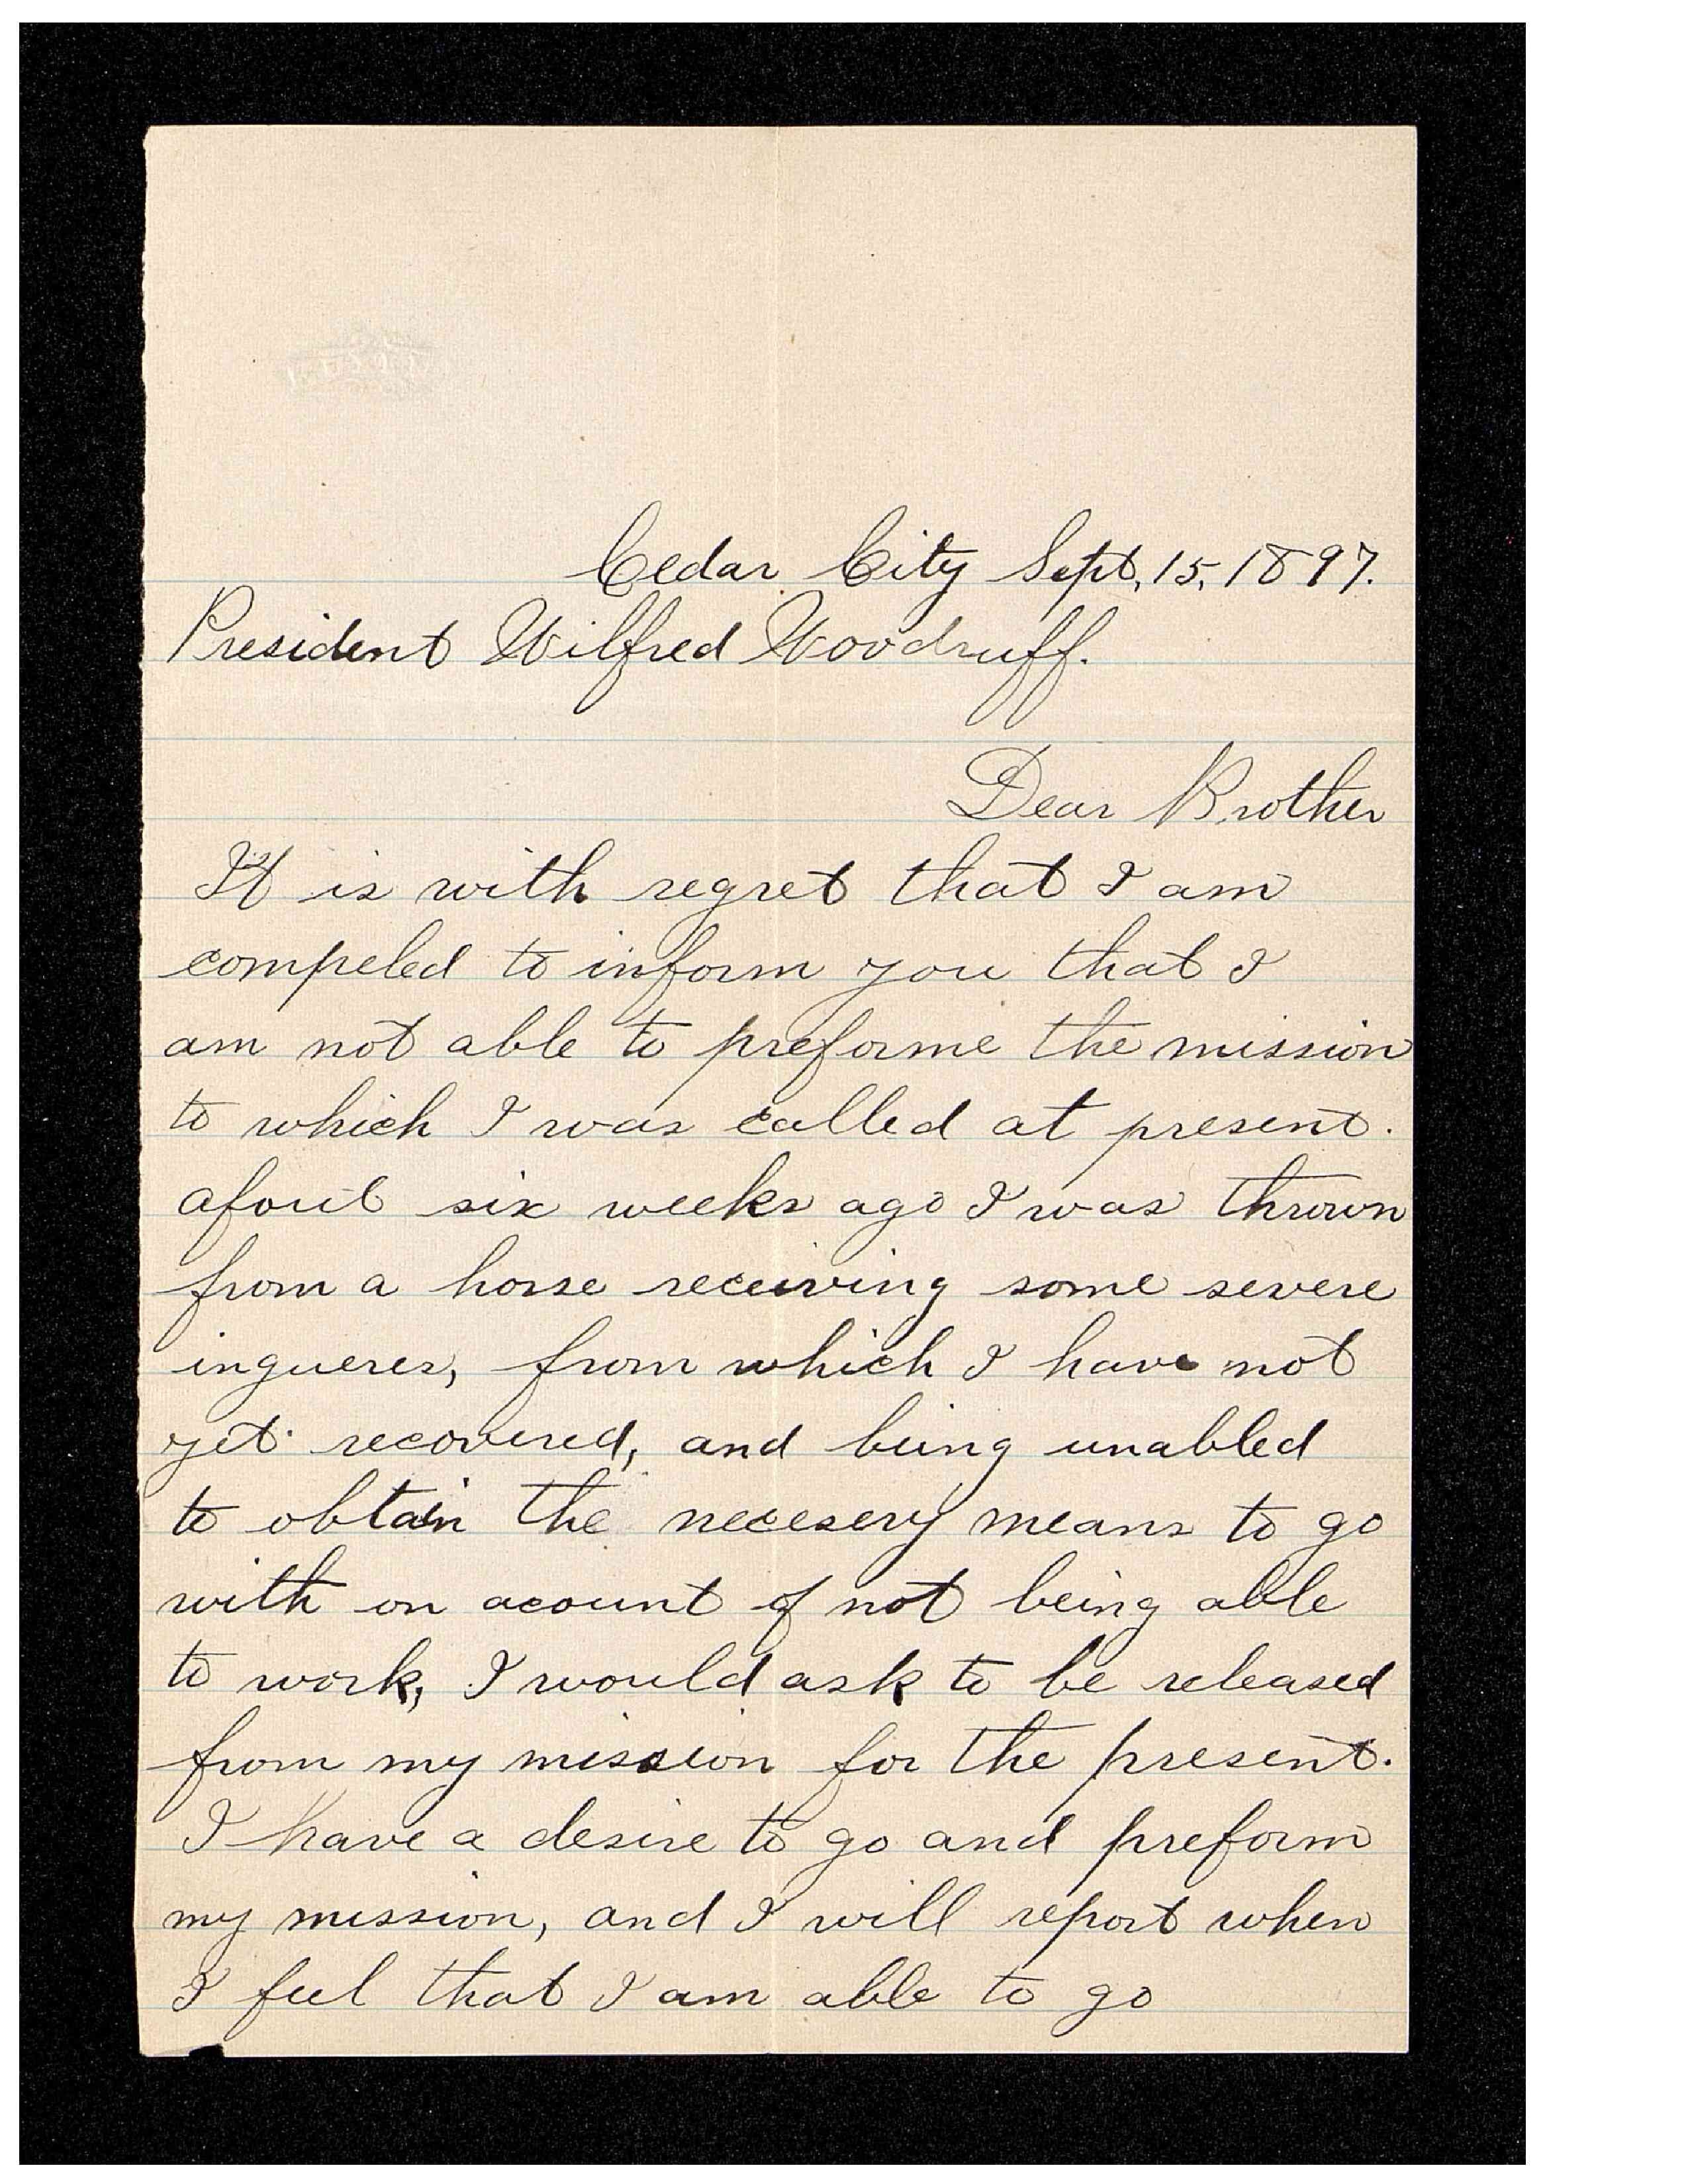 Cedar City Sept, 15, 1897.
President Wilfred Woodruff.
Dear Brother
It is with regret that I am
compeled to inform you that I
am not able to preforme the mission
to which I was called at present.
afout six weeks ago I was thrown
from a horse receiving some severe
ingueres, from which I have not
yet recovered, and being unabled
to obtain the necesery means to go
with on acount of not being able
to work, I would ask to be released
from my mission for the present.
I have a desire to go and preform
my mission, and I will report when
I feel that I am able to go